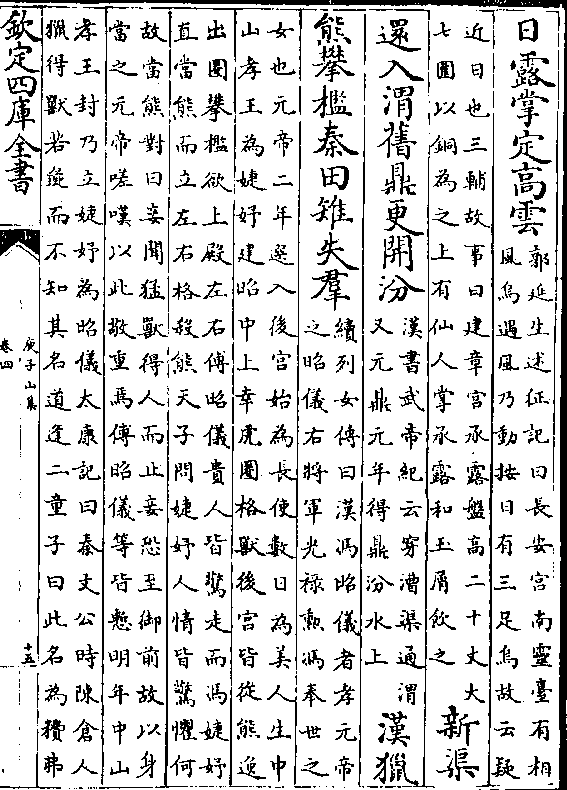 日露掌定高雲
郭延生述征記曰長安宮南靈臺有相
風烏遇風乃動按日有三足烏故云疑
近日也三輔故事曰建章宮承露盤高二十丈大
七圍以銅為之上有仙人掌承露和玉屑飲之
新渠
還入渭舊鼎更開汾
漢書武帝紀云穿漕渠通渭
又元鼎元年得鼎汾水上
漢獵
熊攀檻秦田雉失羣
續列女傳曰漢馮昭儀者孝元帝
之昭儀右將軍光祿勲馮奉世之
女也元帝二年選入後宮始為長使數日為美人生中
山孝王為婕妤建昭中上幸虎圈格獸後宮皆從熊逸
出圈攀檻欲上殿左右傅昭儀貴人皆驚走而馮婕妤
直當熊而立左右格殺熊天子問婕妤人情皆驚懼何
故當熊對曰妾聞猛獸得人而止妾恐至御前故以身
當之元帝嗟嘆以此敬重焉傅昭儀等皆慙明年中山
孝王封乃立婕妤為昭儀太康記曰秦文公時陳倉人
獵得獸若彘而不知其名道逢二童子曰此名為弗
欽定四庫全書
庾子山集
卷四
十五